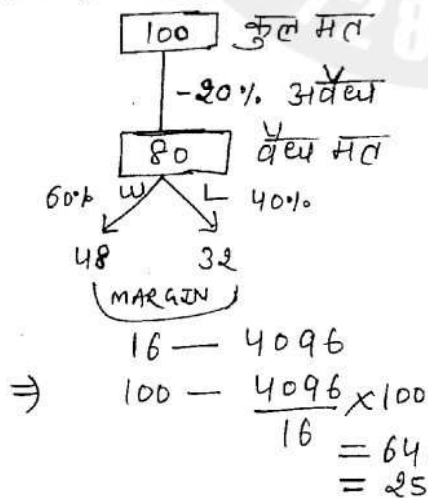 100 कुल मत
-20% अवैध
80 वैध मत
60% W L 40%
48 32
MARGIN
16 — 4096
⇒ 100 — 4096/16 × 100
= 64
= 25